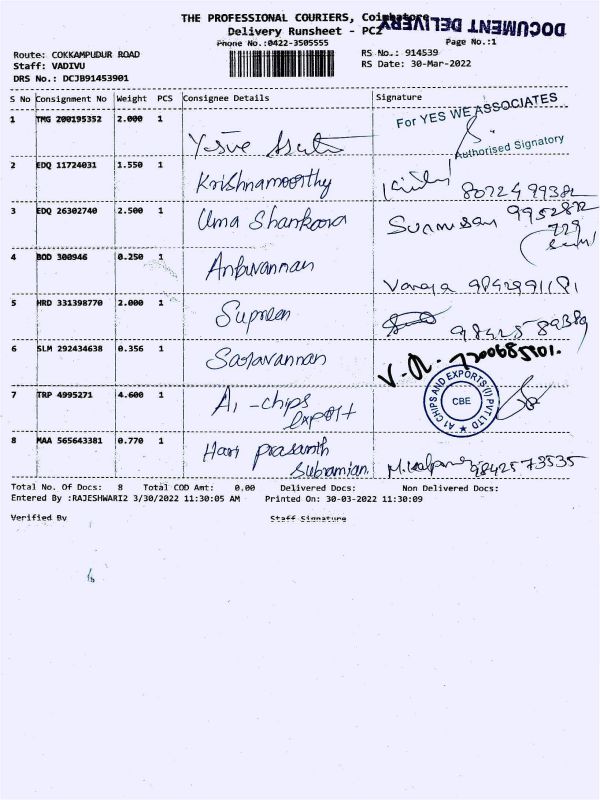 THE PROFESSIONAL COURIERS, Coimbatore
DOCUMENT DELIVERY
Delivery Runsheet - PCZ
Phone No.:0422-3505555 Page No.:1
Route: COKKAMPUDUR ROAD RS No.: 914539
Staff: VADIVU RS Date: 30-Mar-2022
DRS No.: DCJB91453901
S No Consignment No Weight PCS Consignee Details Signature
1 TMG 200195352 2.000 1
For YES WE ASSOCIATES
Authorised Signatory
2 EDQ 11724031 1.550 1 Krishnamoorthy
3 EDQ 26302740 2.500 1 Uma Shankara
4 BOD 300946 0.250 1 Anbuvannan
5 HRD 331398770 2.000 1 Supreen
6 SLM 292434638 0.356 1 Saravannan
7 TRP 4995271 4.600 1 A1 - chips
Export
A1 CHIPS AND EXPORTS(I) PVT LTD
CBE
8 MAA 565643381 0.770 1 Hari Prasanth
Subramian. 9842573535
Total No. Of Docs: 8 Total COD Amt: 0.00 Delivered Docs: Non Delivered Docs:
Entered By :RAJESHWARI2 3/30/2022 11:30:05 AM Printed On: 30-03-2022 11:30:09
Verified By Staff Signature